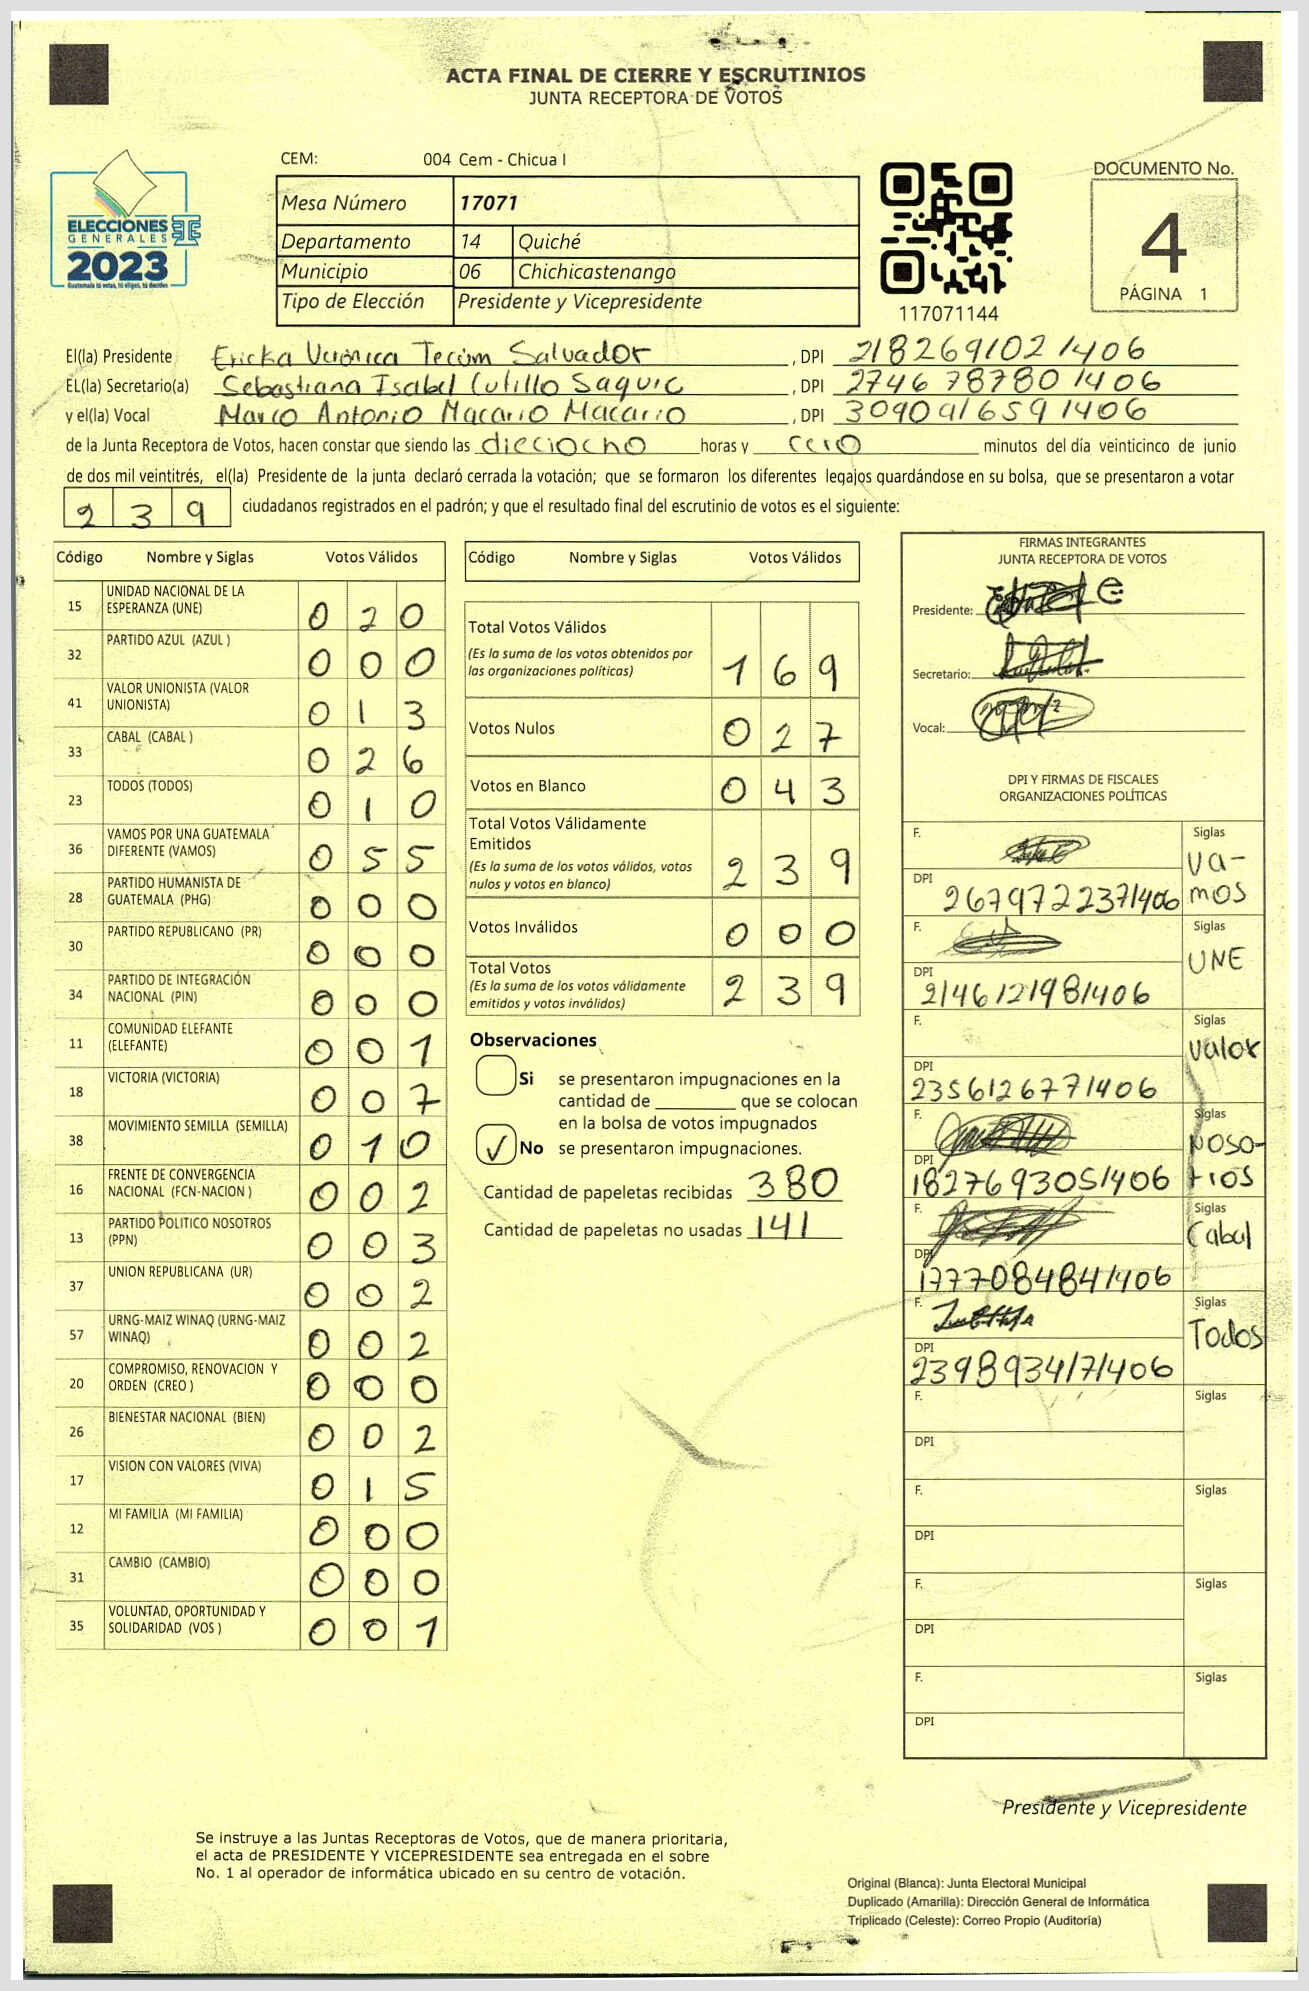 ACTA FINAL DE CIERRE Y ESCRUTINIOS
JUNTA RECEPTORA DE VOTOS
CEM: 004 Cem - Chicua I
ELECCIONES
GENERALES
2023
Guatemala tú votas, tú eliges, tú decides
Mesa Número 17071
Departamento 14 Quiché
Municipio 06 Chichicastenango
Tipo de Elección Presidente y Vicepresidente
117071144
DOCUMENTO No.
4
PÁGINA 1
El(la) Presidente Ericka Verónica Tecúm Salvador , DPI 2182691021406
EL(la) Secretario(a) Sebastiana Isabel Cutillo Saquic , DPI 2746787801406
y el(la) Vocal Marco Antonio Macario Macario , DPI 3090916591406
de la Junta Receptora de Votos, hacen constar que siendo las dieciocho horas y cero minutos del día veinticinco de junio
de dos mil veintitrés, el(la) Presidente de la junta declaró cerrada la votación; que se formaron los diferentes legajos guardándose en su bolsa, que se presentaron a votar
239 ciudadanos registrados en el padrón; y que el resultado final del escrutinio de votos es el siguiente:
Código Nombre y Siglas Votos Válidos
15 UNIDAD NACIONAL DE LA ESPERANZA (UNE) 0 2 0
32 PARTIDO AZUL (AZUL ) 0 0 0
41 VALOR UNIONISTA (VALOR UNIONISTA) 0 1 3
33 CABAL (CABAL ) 0 2 6
23 TODOS (TODOS) 0 1 0
36 VAMOS POR UNA GUATEMALA DIFERENTE (VAMOS) 0 5 5
28 PARTIDO HUMANISTA DE GUATEMALA (PHG) 0 0 0
30 PARTIDO REPUBLICANO (PR) 0 0 0
34 PARTIDO DE INTEGRACIÓN NACIONAL (PIN) 0 0 0
11 COMUNIDAD ELEFANTE (ELEFANTE) 0 0 1
18 VICTORIA (VICTORIA) 0 0 7
38 MOVIMIENTO SEMILLA (SEMILLA) 0 1 0
16 FRENTE DE CONVERGENCIA NACIONAL (FCN-NACION ) 0 0 2
13 PARTIDO POLITICO NOSOTROS (PPN) 0 0 3
37 UNION REPUBLICANA (UR) 0 0 2
57 URNG-MAIZ WINAQ (URNG-MAIZ WINAQ) 0 0 2
20 COMPROMISO, RENOVACION Y ORDEN (CREO ) 0 0 0
26 BIENESTAR NACIONAL (BIEN) 0 0 2
17 VISION CON VALORES (VIVA) 0 1 5
12 MI FAMILIA (MI FAMILIA) 0 0 0
31 CAMBIO (CAMBIO) 0 0 0
35 VOLUNTAD, OPORTUNIDAD Y SOLIDARIDAD (VOS ) 0 0 1
Código Nombre y Siglas Votos Válidos
Total Votos Válidos
(Es la suma de los votos obtenidos por
las organizaciones políticas) 1 6 9
Votos Nulos 0 2 7
Votos en Blanco 0 4 3
Total Votos Válidamente
Emitidos
(Es la suma de los votos válidos, votos
nulos y votos en blanco) 2 3 9
Votos Inválidos 0 0 0
Total Votos
(Es la suma de los votos válidamente
emitidos y votos inválidos) 2 3 9
Observaciones
Si se presentaron impugnaciones en la
cantidad de ________ que se colocan
en la bolsa de votos impugnados
✓ No se presentaron impugnaciones.
Cantidad de papeletas recibidas 380
Cantidad de papeletas no usadas 141
FIRMAS INTEGRANTES
JUNTA RECEPTORA DE VOTOS
Presidente:
Secretario:
Vocal:
DPI Y FIRMAS DE FISCALES
ORGANIZACIONES POLÍTICAS
F. Siglas
Va-
mos
DPI 2679722371406
F. Siglas
UNE
DPI 2146121981406
F. Siglas
Valor
DPI 2356126771406
F. Siglas
Noso-
tros
DPI 1827693051406
F. Siglas
Cabal
DPI 1777084841406
F. Siglas
Todos
DPI 2398934171406
F. Siglas
DPI
F. Siglas
DPI
F. Siglas
DPI
F. Siglas
DPI
Presidente y Vicepresidente
Se instruye a las Juntas Receptoras de Votos, que de manera prioritaria,
el acta de PRESIDENTE Y VICEPRESIDENTE sea entregada en el sobre
No. 1 al operador de informática ubicado en su centro de votación.
Original (Blanca): Junta Electoral Municipal
Duplicado (Amarilla): Dirección General de Informática
Triplicado (Celeste): Correo Propio (Auditoría)